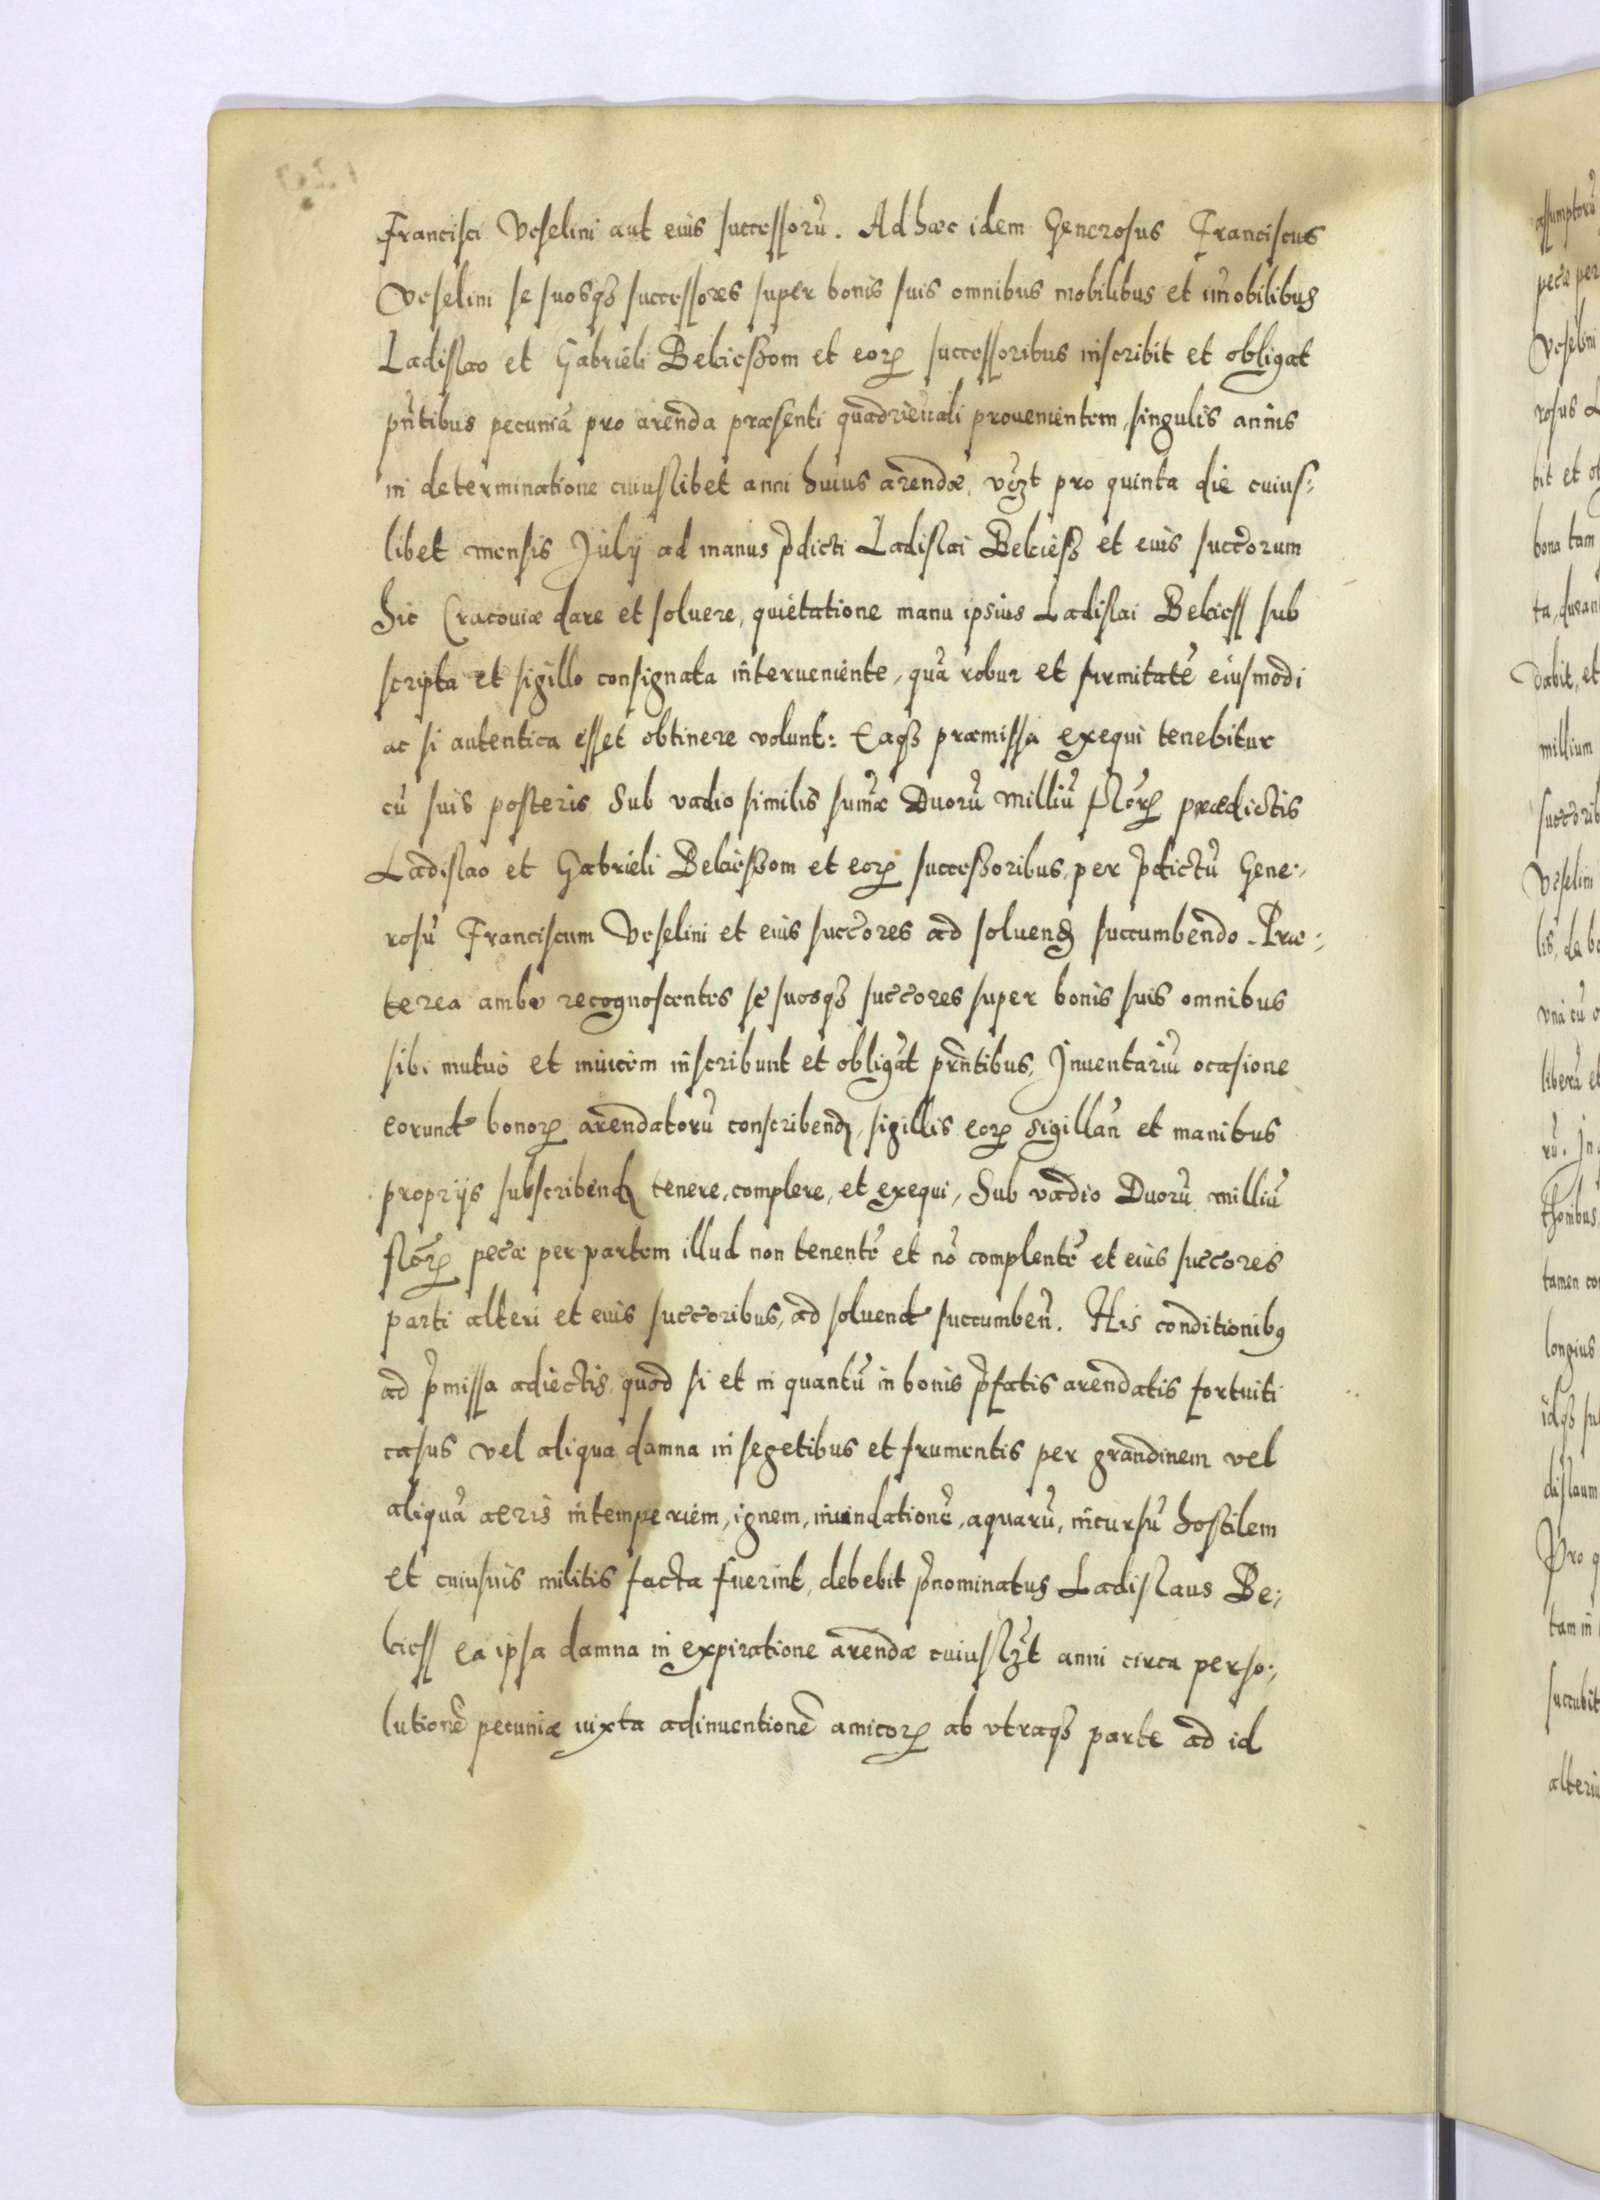 Francisci Veselini aut eius successorũ. Ad hæc idem Generosus Franciscus
Veselini se suosqȝ successores super bonis suis omnibus mobilibus et im̃obilibus
Ladislao et Gabrieli Bekießom et eorꝝ successoribus inscribit et obligat
pñtibus pecuniã pro arenda præsenti quadrieñali prouenientem, singulis annis
in determinatione cuiuslibet anni huius arendæ, vȝt pro quinta die cuius:
libet mensis July ad manus p̃dicti Ladislai Bekieß et eius succõrum
hic Cracouiæ dare et soluere, quietatione manu ipsius Ladislai Bekiess sub
scripta et sigillo consignata interueniente, quã robur et firmitatẽ eiusmodi
ac si autentica esset obtinere volunt: Eaqȝ præmissa exequi tenebitur
cũ suis posteris sub vadio similis sum̃æ Duorũ milliũ flõrꝝ prædictis
Ladislao et Gabrieli Bekießom et eorꝝ succeßoribus, per p̃dictũ Gene:
rosũ Franciscum Veselini et eius succõres ad soluenȡ succumbendo. Præ:
terea ambo recognoscentes se suosqȝ succõres super bonis suis omnibus
sibi mutuo et inuicem inscribunt et obligãt prñtibus, Inuentariũ ocasione
eorund bonorꝝ arendatorũ conscribenȡ, sigillis eorꝝ sigillañ et manibus
proprijs subscribenȡ tenere, complere, et exequi, sub vadio Duorũ milliũ
flõrꝝ pecæ per partem illud non tenentẽ et nõ complentẽ et eius succõres
parti alteri et eius succõribus, ad soluend succumbeñ. His conditionibꝰ
ad p̃missa adiectis, quod si et in quantũ in bonis p̃fatis arendatis fortuiti
casus vel aliqua damna in segetibus et frumentis per grandinem vel
aliquã aeris intemperiem, ignem, inundationẽ, aquarũ, incursũ hostilem
et cuiusuis militis facta fuerint, debebit p̃nominatus Ladislaus Be:
kiess ea ipsa damna in expiratione arendæ cuiuslȝt anni circa perso:
lutionẽ pecuniæ iuxta adinuentionẽ amicorꝝ ab vtraqȝ parte ad id